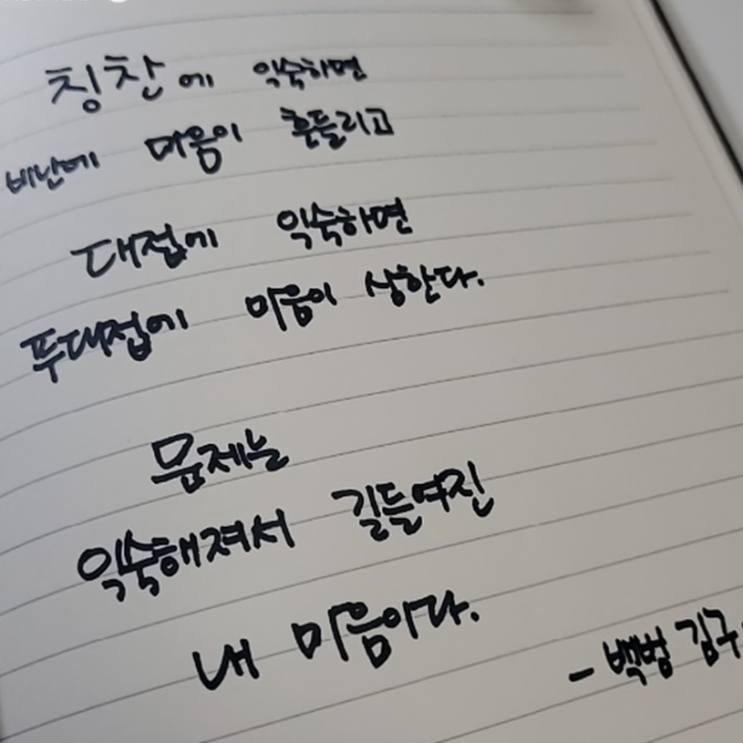 칭찬에 익숙하면
비난에 마음이 흔들리고
대접에 익숙하면
푸대접에 마음이 상한다.
문제는
익숙해져서 길들여진
내 마음이다.
- 백범 김구